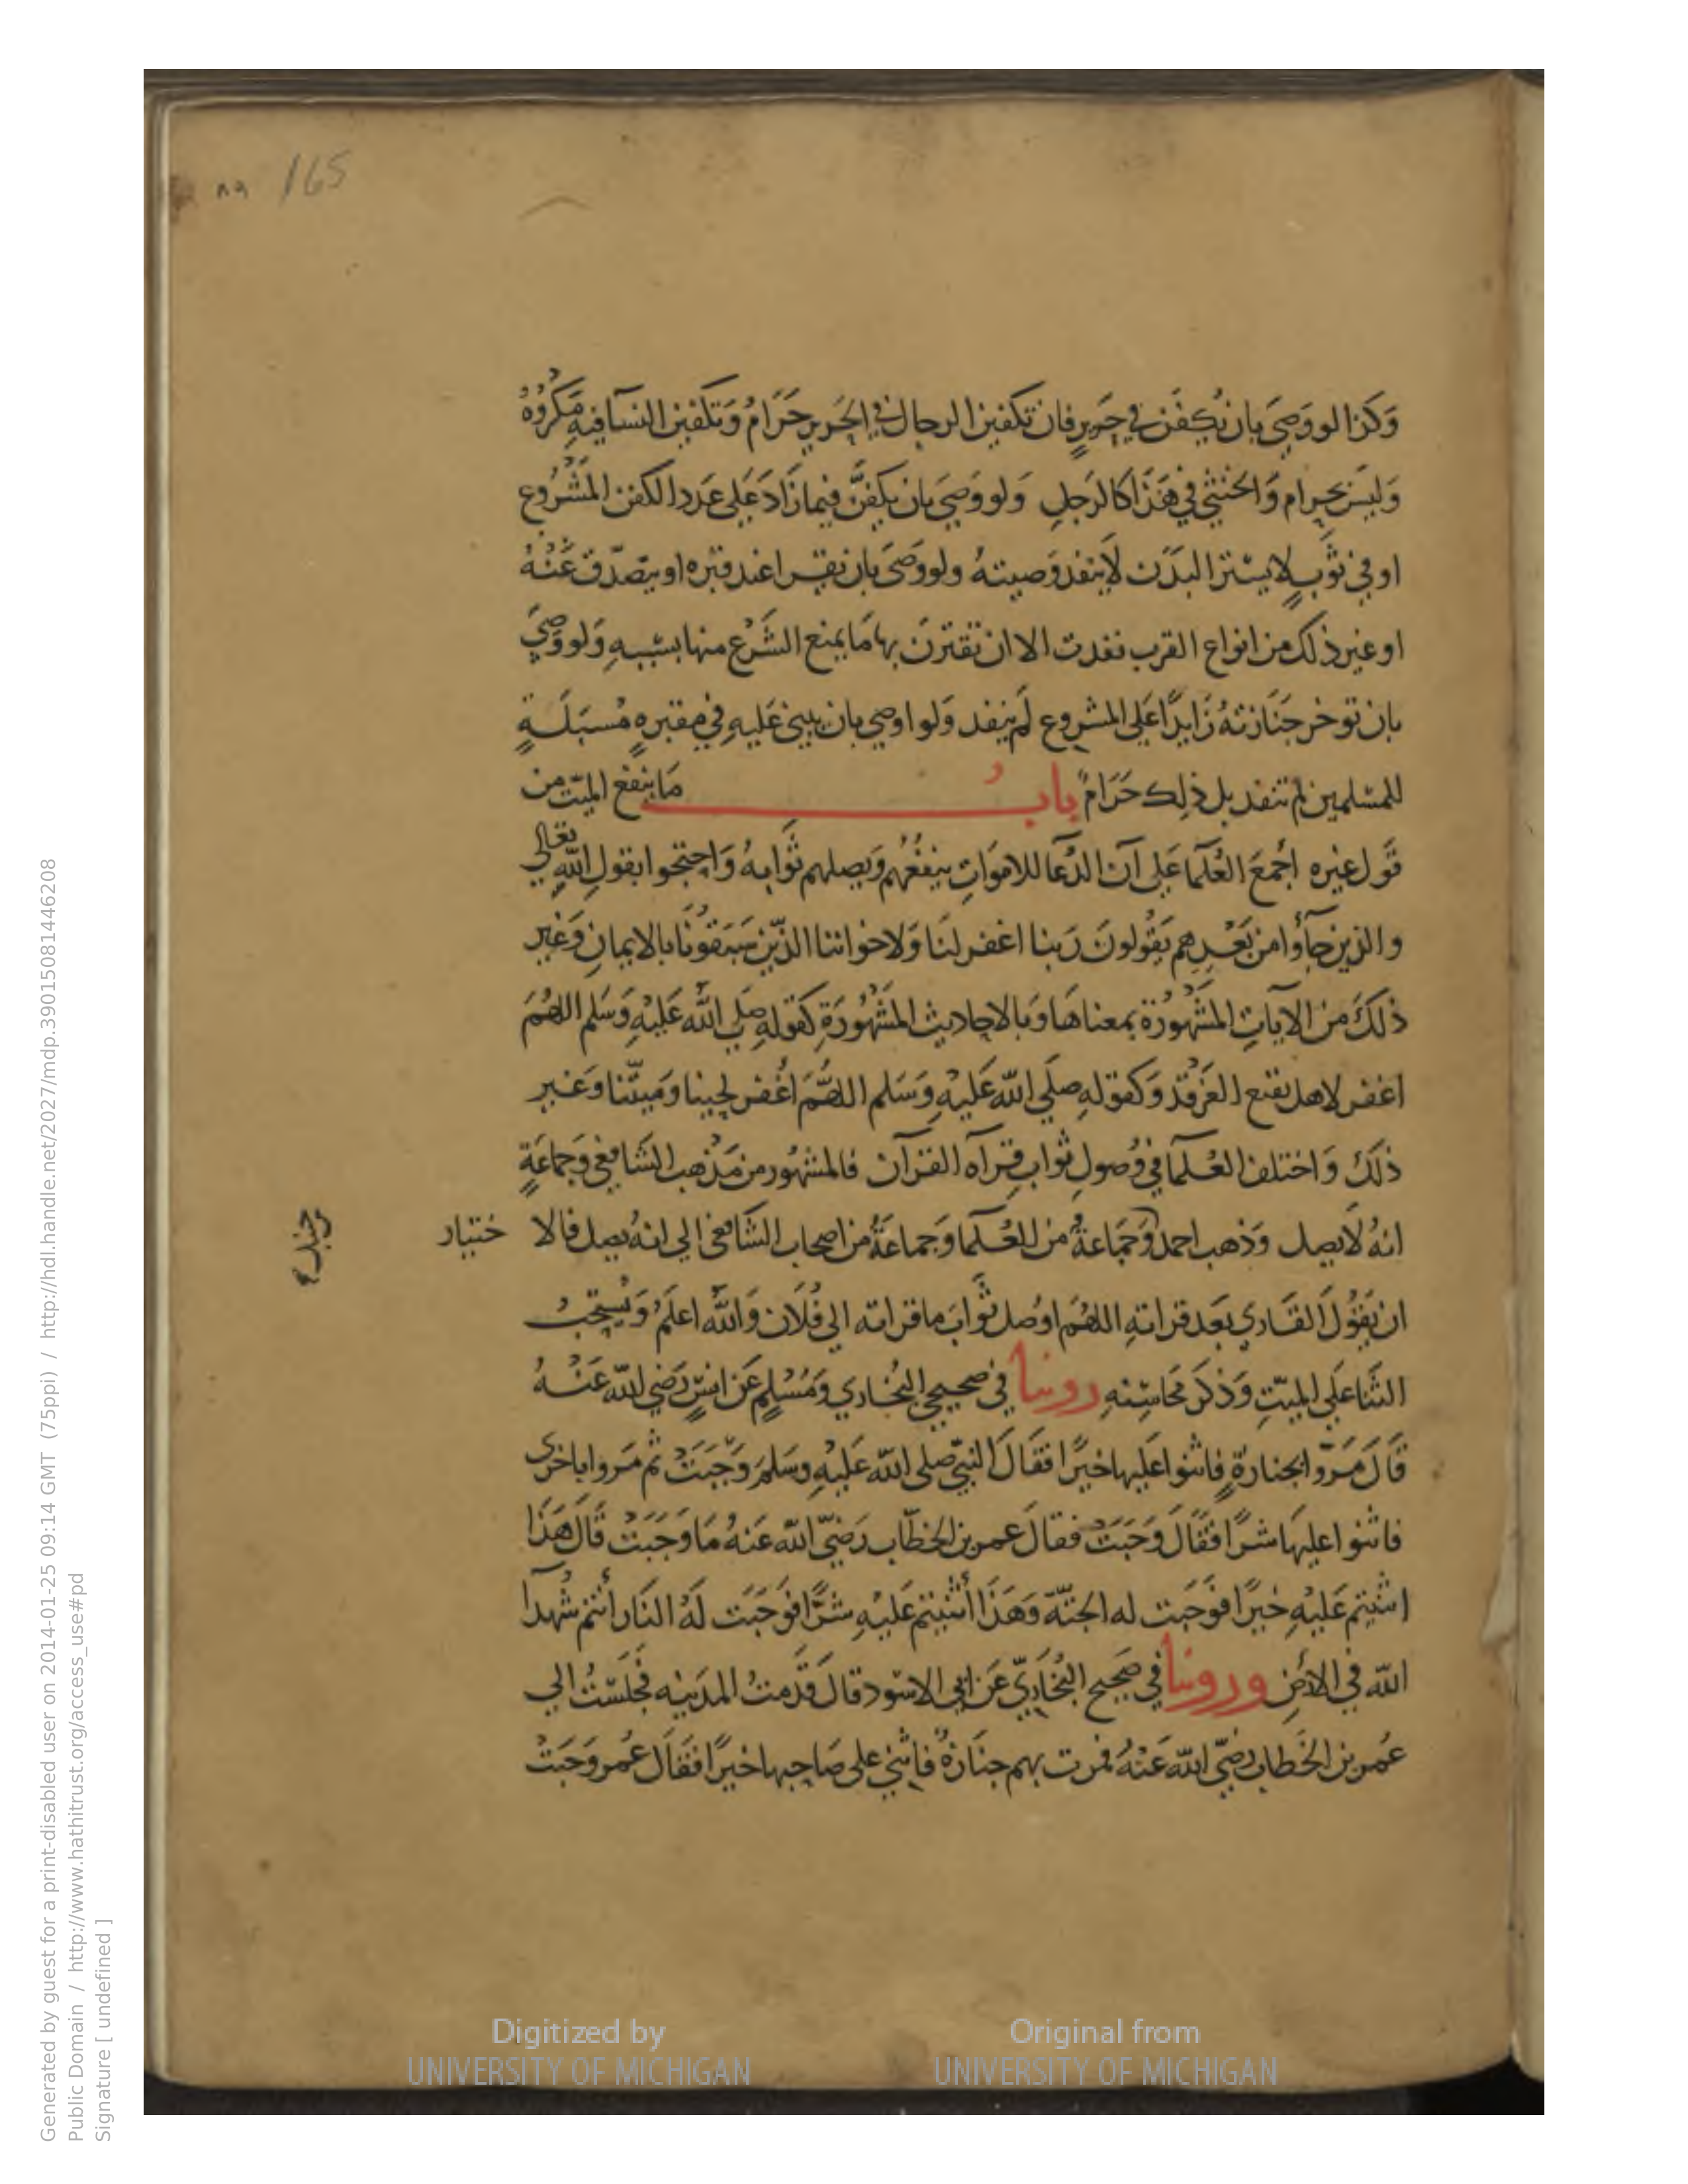 ١٨٩ 165
وَكذا لو وَصَى بان يُكفَن في حَرير فان تكفين الرجال في الحَرير حَرَامُ وَتكفين النسآ فيهِ مَكرُوهُ
وَليسَ بحرام وَالخنثي في هَذَا كالرَجلِ وَلو وَصَيَ بان يكفنَّ فيما زَادَ عَلى عَدد الكفن المَشرُوع
او في ثَوبٍ لا يسْتر البدَن لَا ينفد وَصيتهُ ولو وَصَى بان يقرا عند قبره او يتصّدق عَنْهُ
او غير ذلك من انواع القرب نفدت الا ان تقترنَ بها مَا يمنع الشَرْع منها بسَببهِ وَلو وَصيَ
بان توخر جنَازتهُ زَايدًا عَلى المشروع لَم ينفد وَلو اوصي بان يبني عَليهِ في مقبرهٍ مُسبَلَةٍ
للمسْلمين لم تنفد بل ذلِك حَرَامٌ بابُ مَا ينفعُ الميّت من
قَول غيره اجْمعَ العُلَمآ عَلى انّ الدُعَآ للاموَات ينفعُهُم وَيصلهم ثَوابهُ وَاحتجوا بقولِ اللّهِ تعَالي
والذين جآؤُا من بَعْدِهِم يَقُولونَ رَبنا اغفر لنَا وَلاخواننا الذّين سَبَقونَا بالايمانِ وَغير
ذلكَ من الآيات المَشْهُورَة بمعناهَا وَبالاحاديث المَشْهُورَةِ كَقولهِ صَلى اللّه عَليْهِ وَسَلم اللهُمَ
اغفر لاهل بقيع الغَرقد وَكقولهِ صَلَي اللّه عَليْهِ وَسَلم اللهُمَ اغْفر لحينا وَميّتنا وَغير
ذلكَ وَاختلف العُلمآ في وُصولِ ثواب قِراه القرآن فالمشهُور من مَذهب الشَافعي وَجماعَةٍ
انهُ لَا يصل وَذهب احمد وَجَماعةُ من العُلمآ وَجماعَةُ من اصحاب الشَافعي الي انهُ يصل فالا ختيار
بن حنبل
ان يَقُولَ القَاري بَعد قراتهِ اللهُمَ اوصُل ثَوابَ ما قراته الى فُلَان وَاللّه اعلَمُ وَيُستحبُ
الثنَا عَلي الميّتِ وَذكر مَحَاسِنهِ روينا في صحيحي البُخَاري وَمُسْلِم عَن انسٍ رَضي اللّه عَنْهُ
قَالَ مَرّوا بجنازةٍ فاثنوا عَليها خيرًا فقَالَ النبيّ صلى اللّه عَليْهِ وسَلمَ وَجَبَتْ ثم مَروا باخرى
فاثنوا عليهَا شرًا فقَالَ وَجَبَتْ فقالَ عمر بن الخطّاب رَضيّ اللّه عَنهُ مَا وَجَبَتْ قَالَ هَذَا
اثنيتم عَليْهِ خيرًا فوَجَبت له الجنّة وَهَذَا أثنيتم عَليْهِ شرًّا فوَجَبَت لَهُ النَار أنتم شُهدآ
اللّه في الأرضِ وروينا في صَحيح البُخَاريّ عَن ابي الاسْود قالَ قَدمتُ المدَينه فجلَسْتُ الي
عُمر بن الخَطاب رضيّ اللّه عَنْهُ فمرت بهم جنَازةُ فاثني على صَاحبها خيرًا فقَالَ عُمر وَجَبَتْ
Digitized by
UNIVERSITY OF MICHIGAN
Original from
UNIVERSITY OF MICHIGAN
Generated by guest for a print-disabled user on 2014-01-25 09:14 GMT (75ppi) / http://hdl.handle.net/2027/mdp.39015081446208
Public Domain / http://www.hathitrust.org/access_use#pd
Signature [ undefined ]